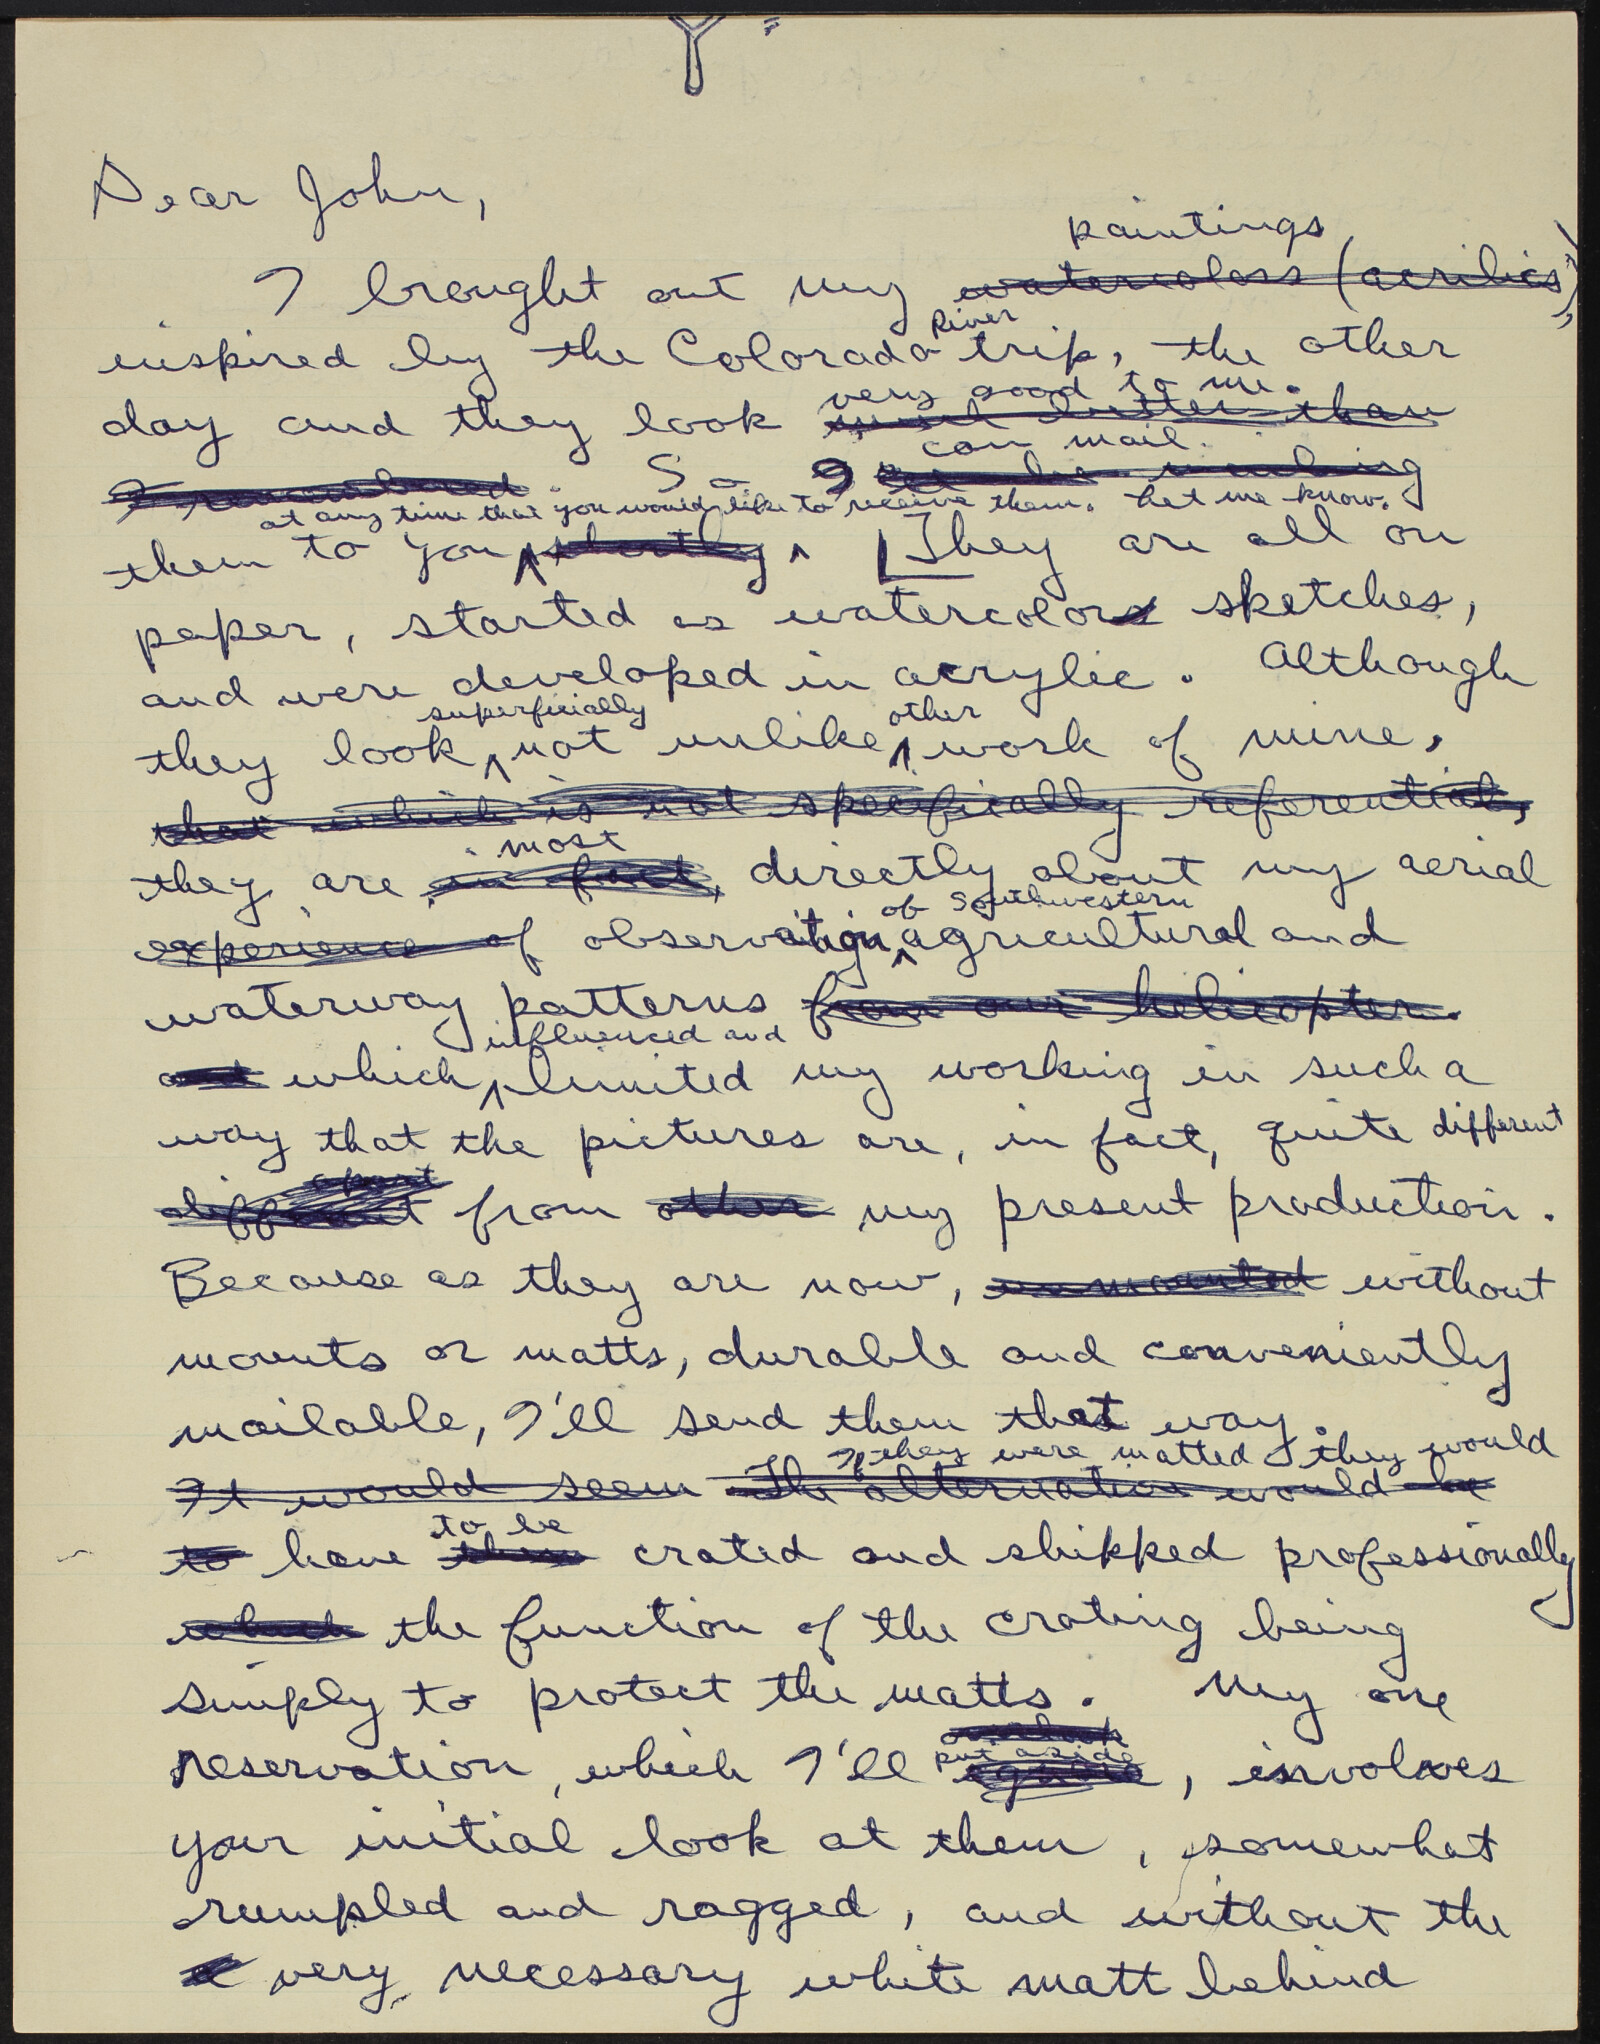 Dear John,
paintings
I brought out my watercolors (acrilics)
River
inspired by the Colorado trip, the other
very good to me.
day and they look much better than
can mail.
I remembered. So I will be mailing
at any time that you would like to receive them. Let me know.
them to you shortly. They are all on
paper, started as watercolors sketches,
and were developed in acrylic. Although
superficially other
they look not unlike work of mine,
that which is not specifically referential,
most
they are in fact, directly about my aerial
of Southwestern
experience of observation agricultural and
waterway patterns from our helicopter.
influenced and
and which limited my working in such a
way that the pictures are, in fact, quite different
apart
different from other my present production.
Because as they are now, unmounted without
mounts or matts, durable and conveniently
mailable, I'll send them that way.
If they were matted they would
It would seem The alternative would be
to be
to have them crated and shipped professionally
which the function of the crating being
simply to protect the matts. My one
overlook
put aside
reservation, which I'll ignore, involves
your initial look at them, somewhat
rumpled and ragged, and without the
very necessary white matt behind